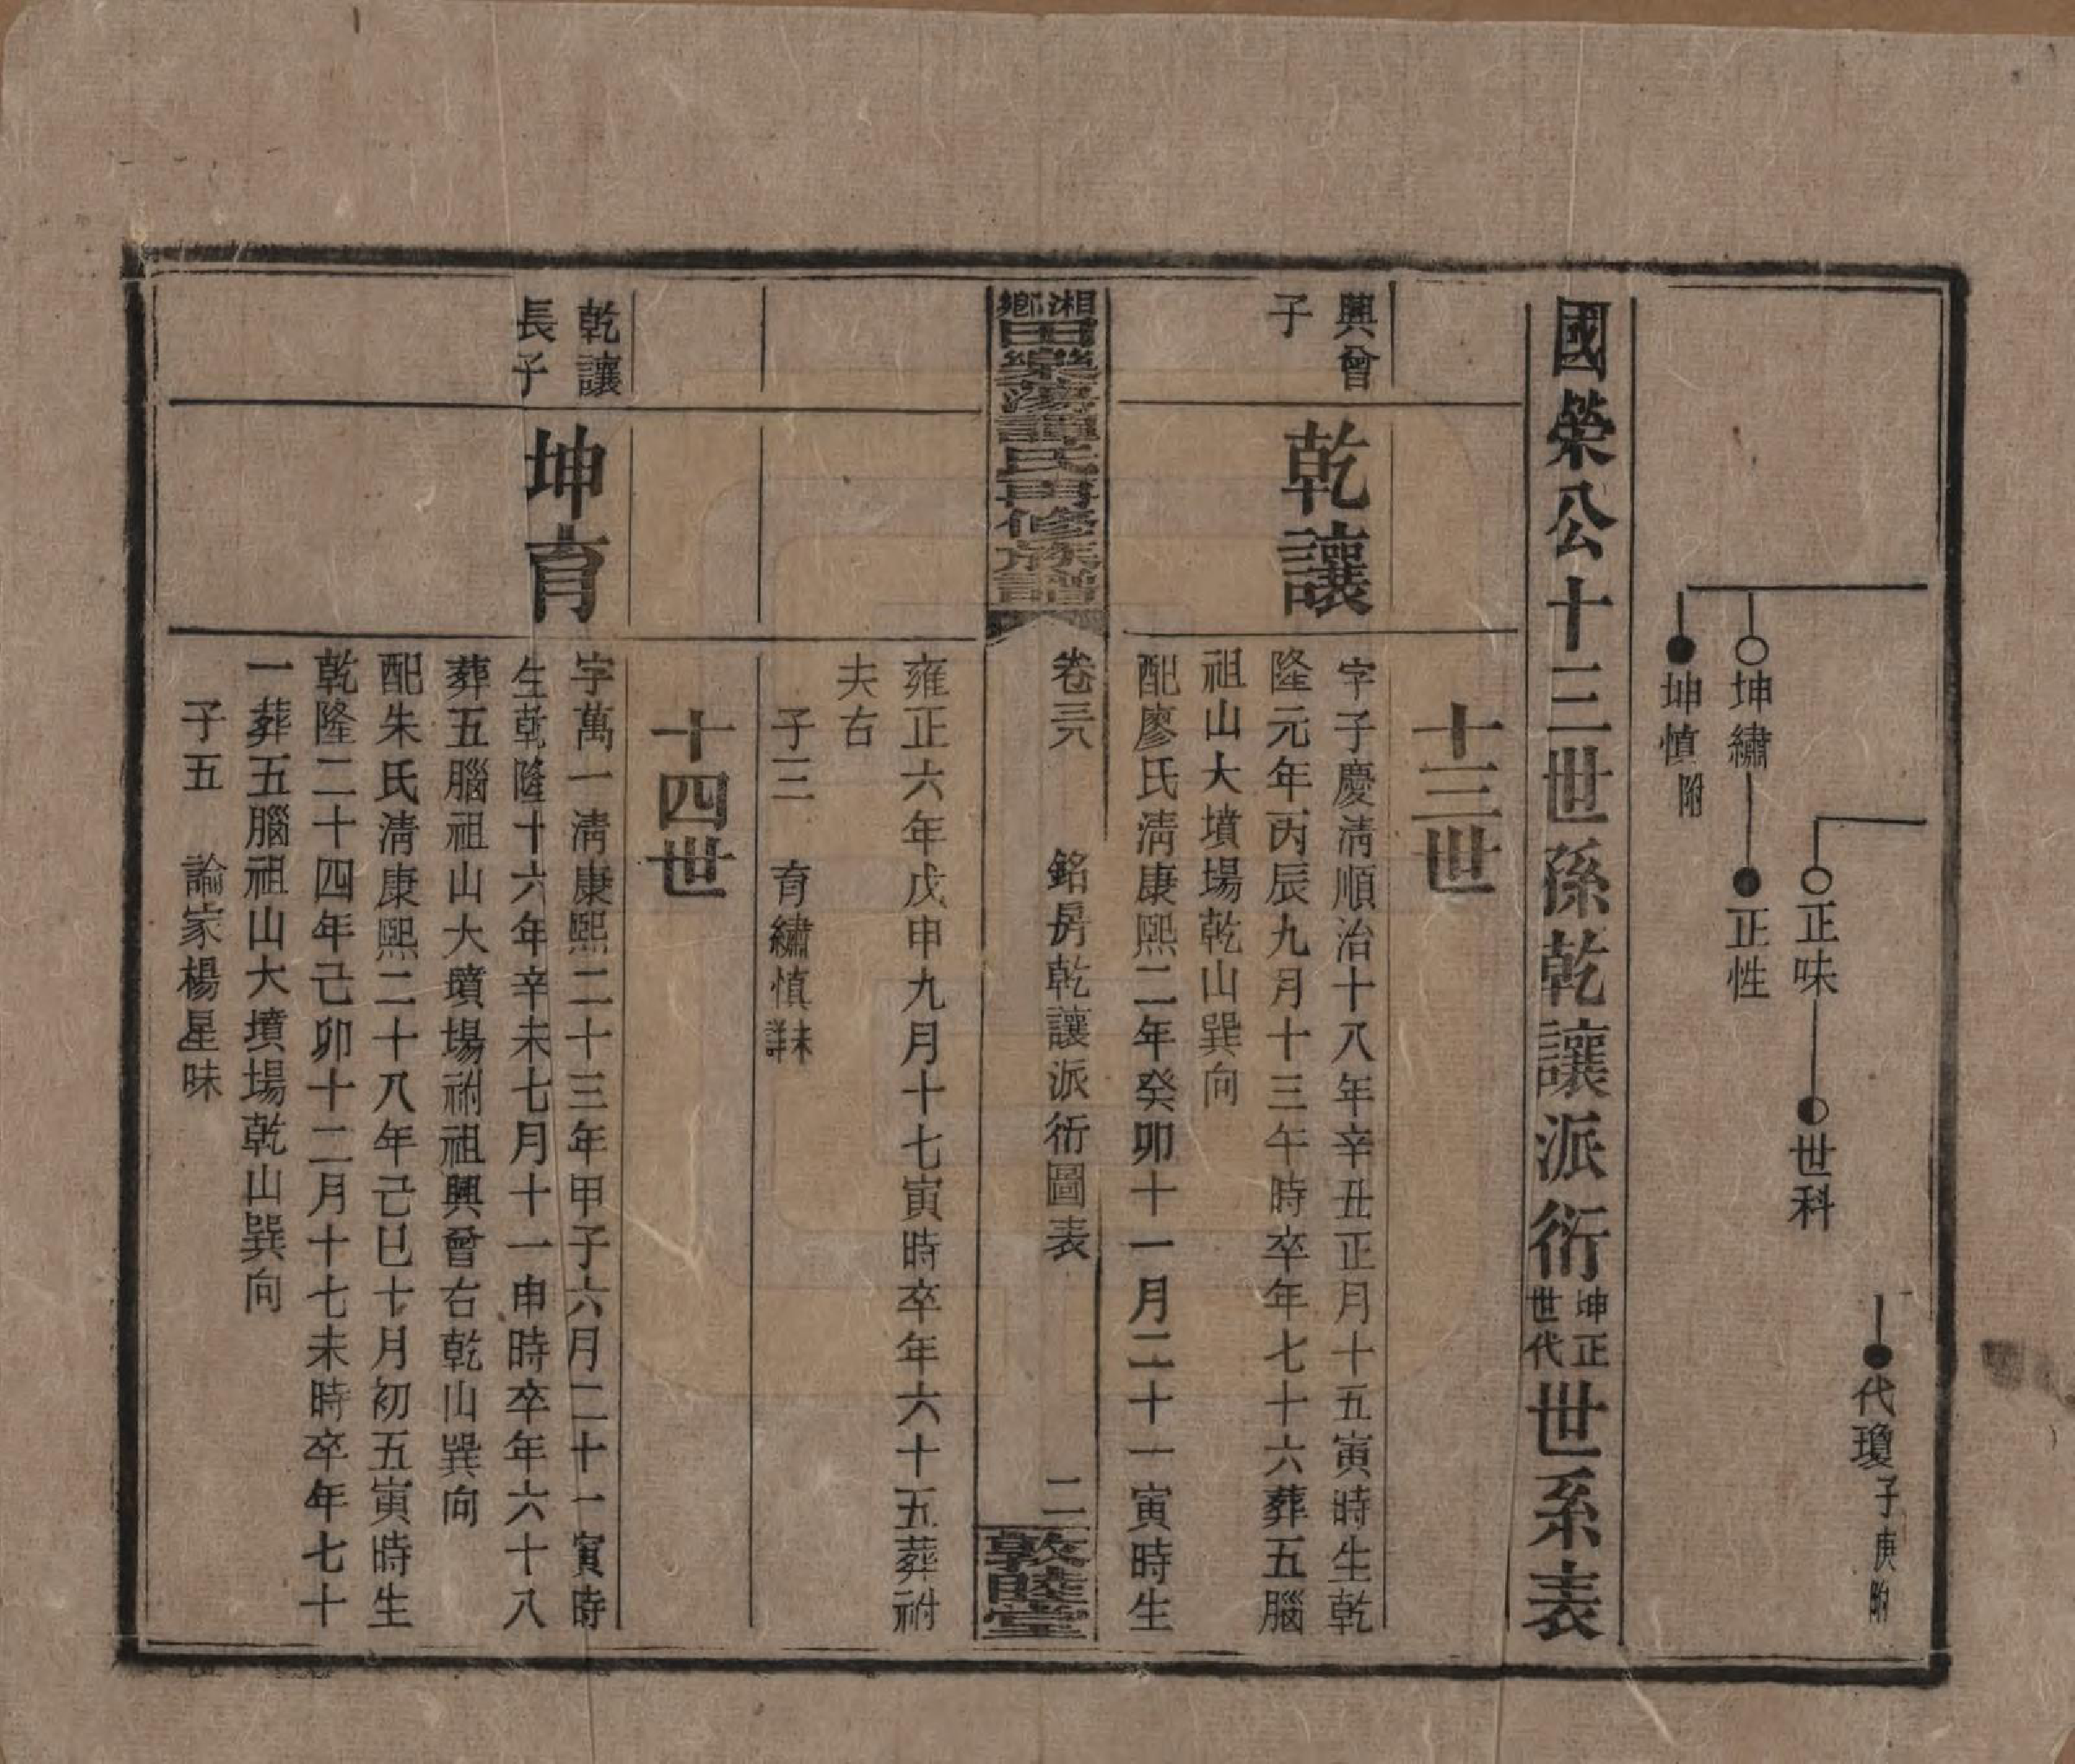 代瓊子庚附
正味
世科
坤繡
正性
坤慎附
國榮公十三世孫乾讓派衍坤正世代世系表
十三世
興曾子
乾讓
字子慶清順治十八年辛丑正月十五寅時生乾
隆元年丙辰九月十三午時卒年七十六葬五腦
祖山大墳場乾山巽向
配廖氏清康熙二年癸卯十一月二十一寅時生
湘鄉田樂蕩譚氏再修族譜
卷三六
銘房乾讓派衍圖表
二
敦睦堂
雍正六年戊申九月十七寅時卒年六十五葬祔
夫右
子三 育繡慎
十四世
乾讓長子
坤育
字萬一清康熙二十三年甲子六月二十一寅時
生乾隆十六年辛未七月十一申時卒年六十八
葬五腦祖山大墳場祔祖興曾右乾山巽向
配朱氏清康熙二十八年己巳十月初五寅時生
乾隆二十四年己卯十二月十七未時卒年七十
一葬五腦祖山大墳場乾山巽向
子五 論家楊星味